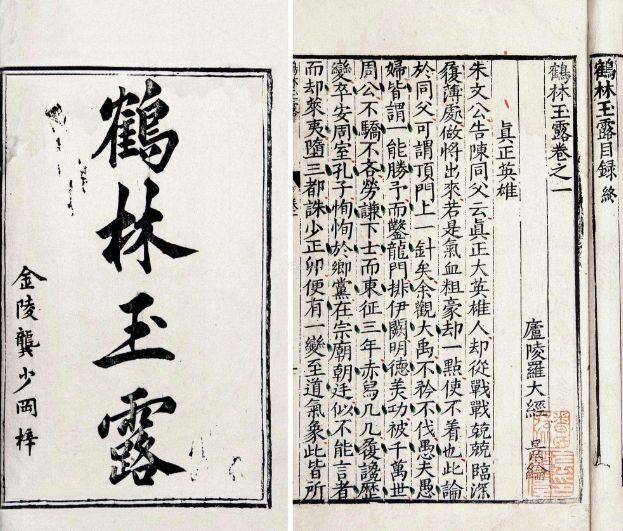 鶴林玉露
金陵龔少岡梓
鶴林玉露目録 終
鶴林玉露卷之一
廬陵羅大經
眞正英雄
朱文公告陳同父云眞正大英雄人却從戰戰兢兢臨深
履薄處做將出來若是氣血粗豪却一點使不着也此論
於同父可謂頂門上一針矣余觀大禹不矜不伐愚夫愚
婦皆謂一能勝予而鑿龍門排伊闕明德美功被千萬世
周公不驕不吝勞謙下士而東征三年赤舄几几履讒歷
變卒安周室孔子恂恂於鄉黨在宗廟朝廷似不能言者
而却萊夷隨三都誅少正卯便有一變至道氣象此皆所